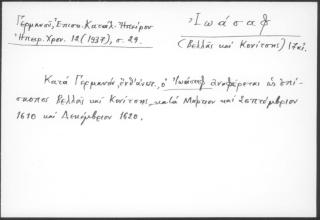 Γερμανοῦ, Ἐπισκ. Κατάλ. Ἠπείρου
Ἠπειρ. Χρον. 12 (1937), σ. 29.
Ἰωάσαφ
(Βελλᾶς καὶ Κονίτσης) 17 αἰ.
Κατὰ Γερμανόν, ἔνθ' ἀνωτ., ὁ Ἰωάσαφ ἀναφέρεται ὡς ἐπί-
σκοπος Βελλᾶς καὶ Κονίτσης κατὰ Μάρτιον καὶ Σεπτέμβριον
1610 καὶ Δεκέμβριον 1620.